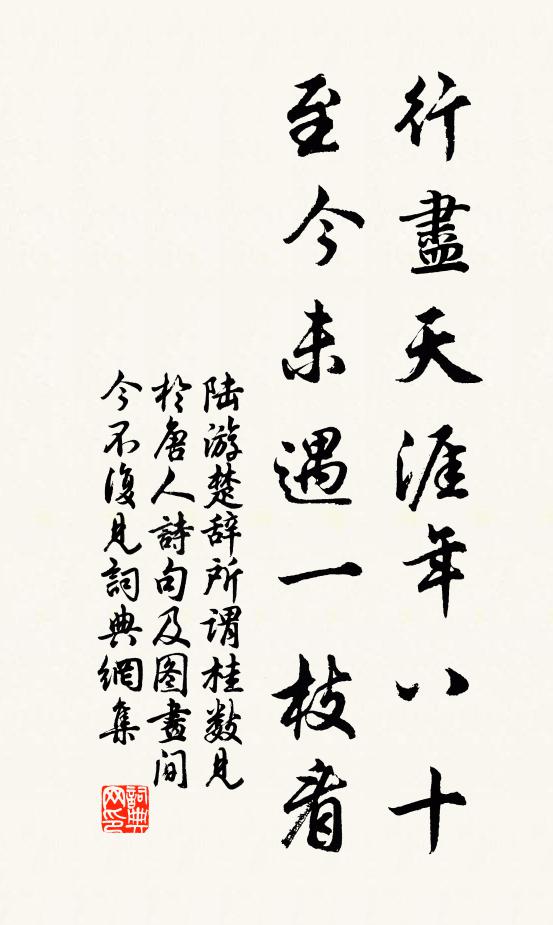 行盡天涯年八十
至今未遇一枝看
陆游楚辞所谓桂数见
於唐人詩句及图畫间
今不復見詞典網集
詞典网印